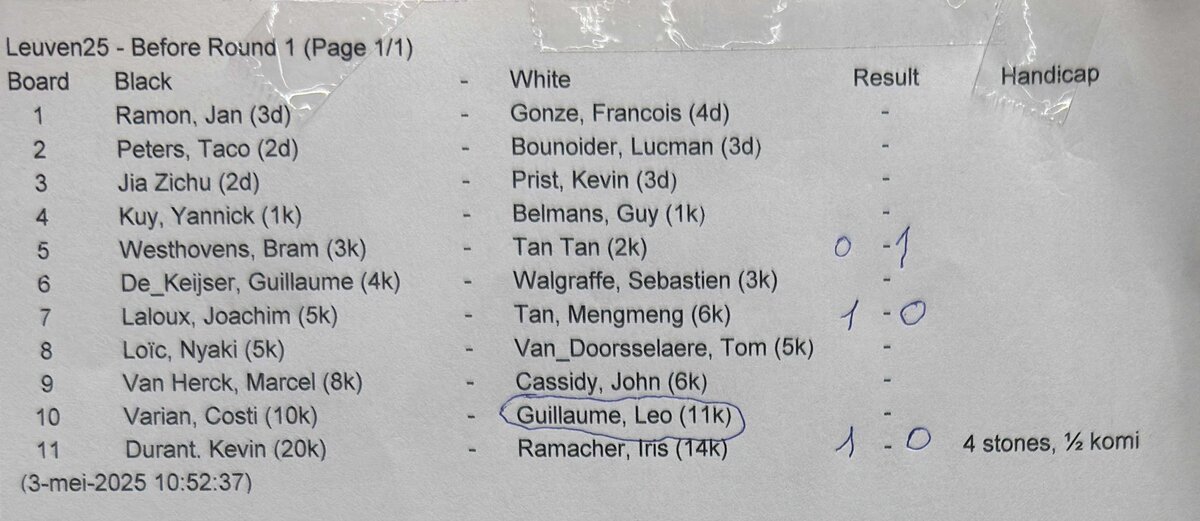 Leuven25 - Before Round 1 (Page 1/1)
Board Black - White Result Handicap
1 Ramon, Jan (3d) - Gonze, Francois (4d) -
2 Peters, Taco (2d) - Bounoider, Lucman (3d) -
3 Jia Zichu (2d) - Prist, Kevin (3d) -
4 Kuy, Yannick (1k) - Belmans, Guy (1k) -
5 Westhovens, Bram (3k) - Tan Tan (2k) 0 - 1
6 De_Keijser, Guillaume (4k) - Walgraffe, Sebastien (3k) -
7 Laloux, Joachim (5k) - Tan, Mengmeng (6k) 1 - 0
8 Loïc, Nyaki (5k) - Van_Doorsselaere, Tom (5k) -
9 Van Herck, Marcel (8k) - Cassidy, John (6k) -
10 Varian, Costi (10k) - Guillaume, Leo (11k) -
11 Durant. Kevin (20k) - Ramacher, Iris (14k) 1 - 0 4 stones, ½ komi
(3-mei-2025 10:52:37)